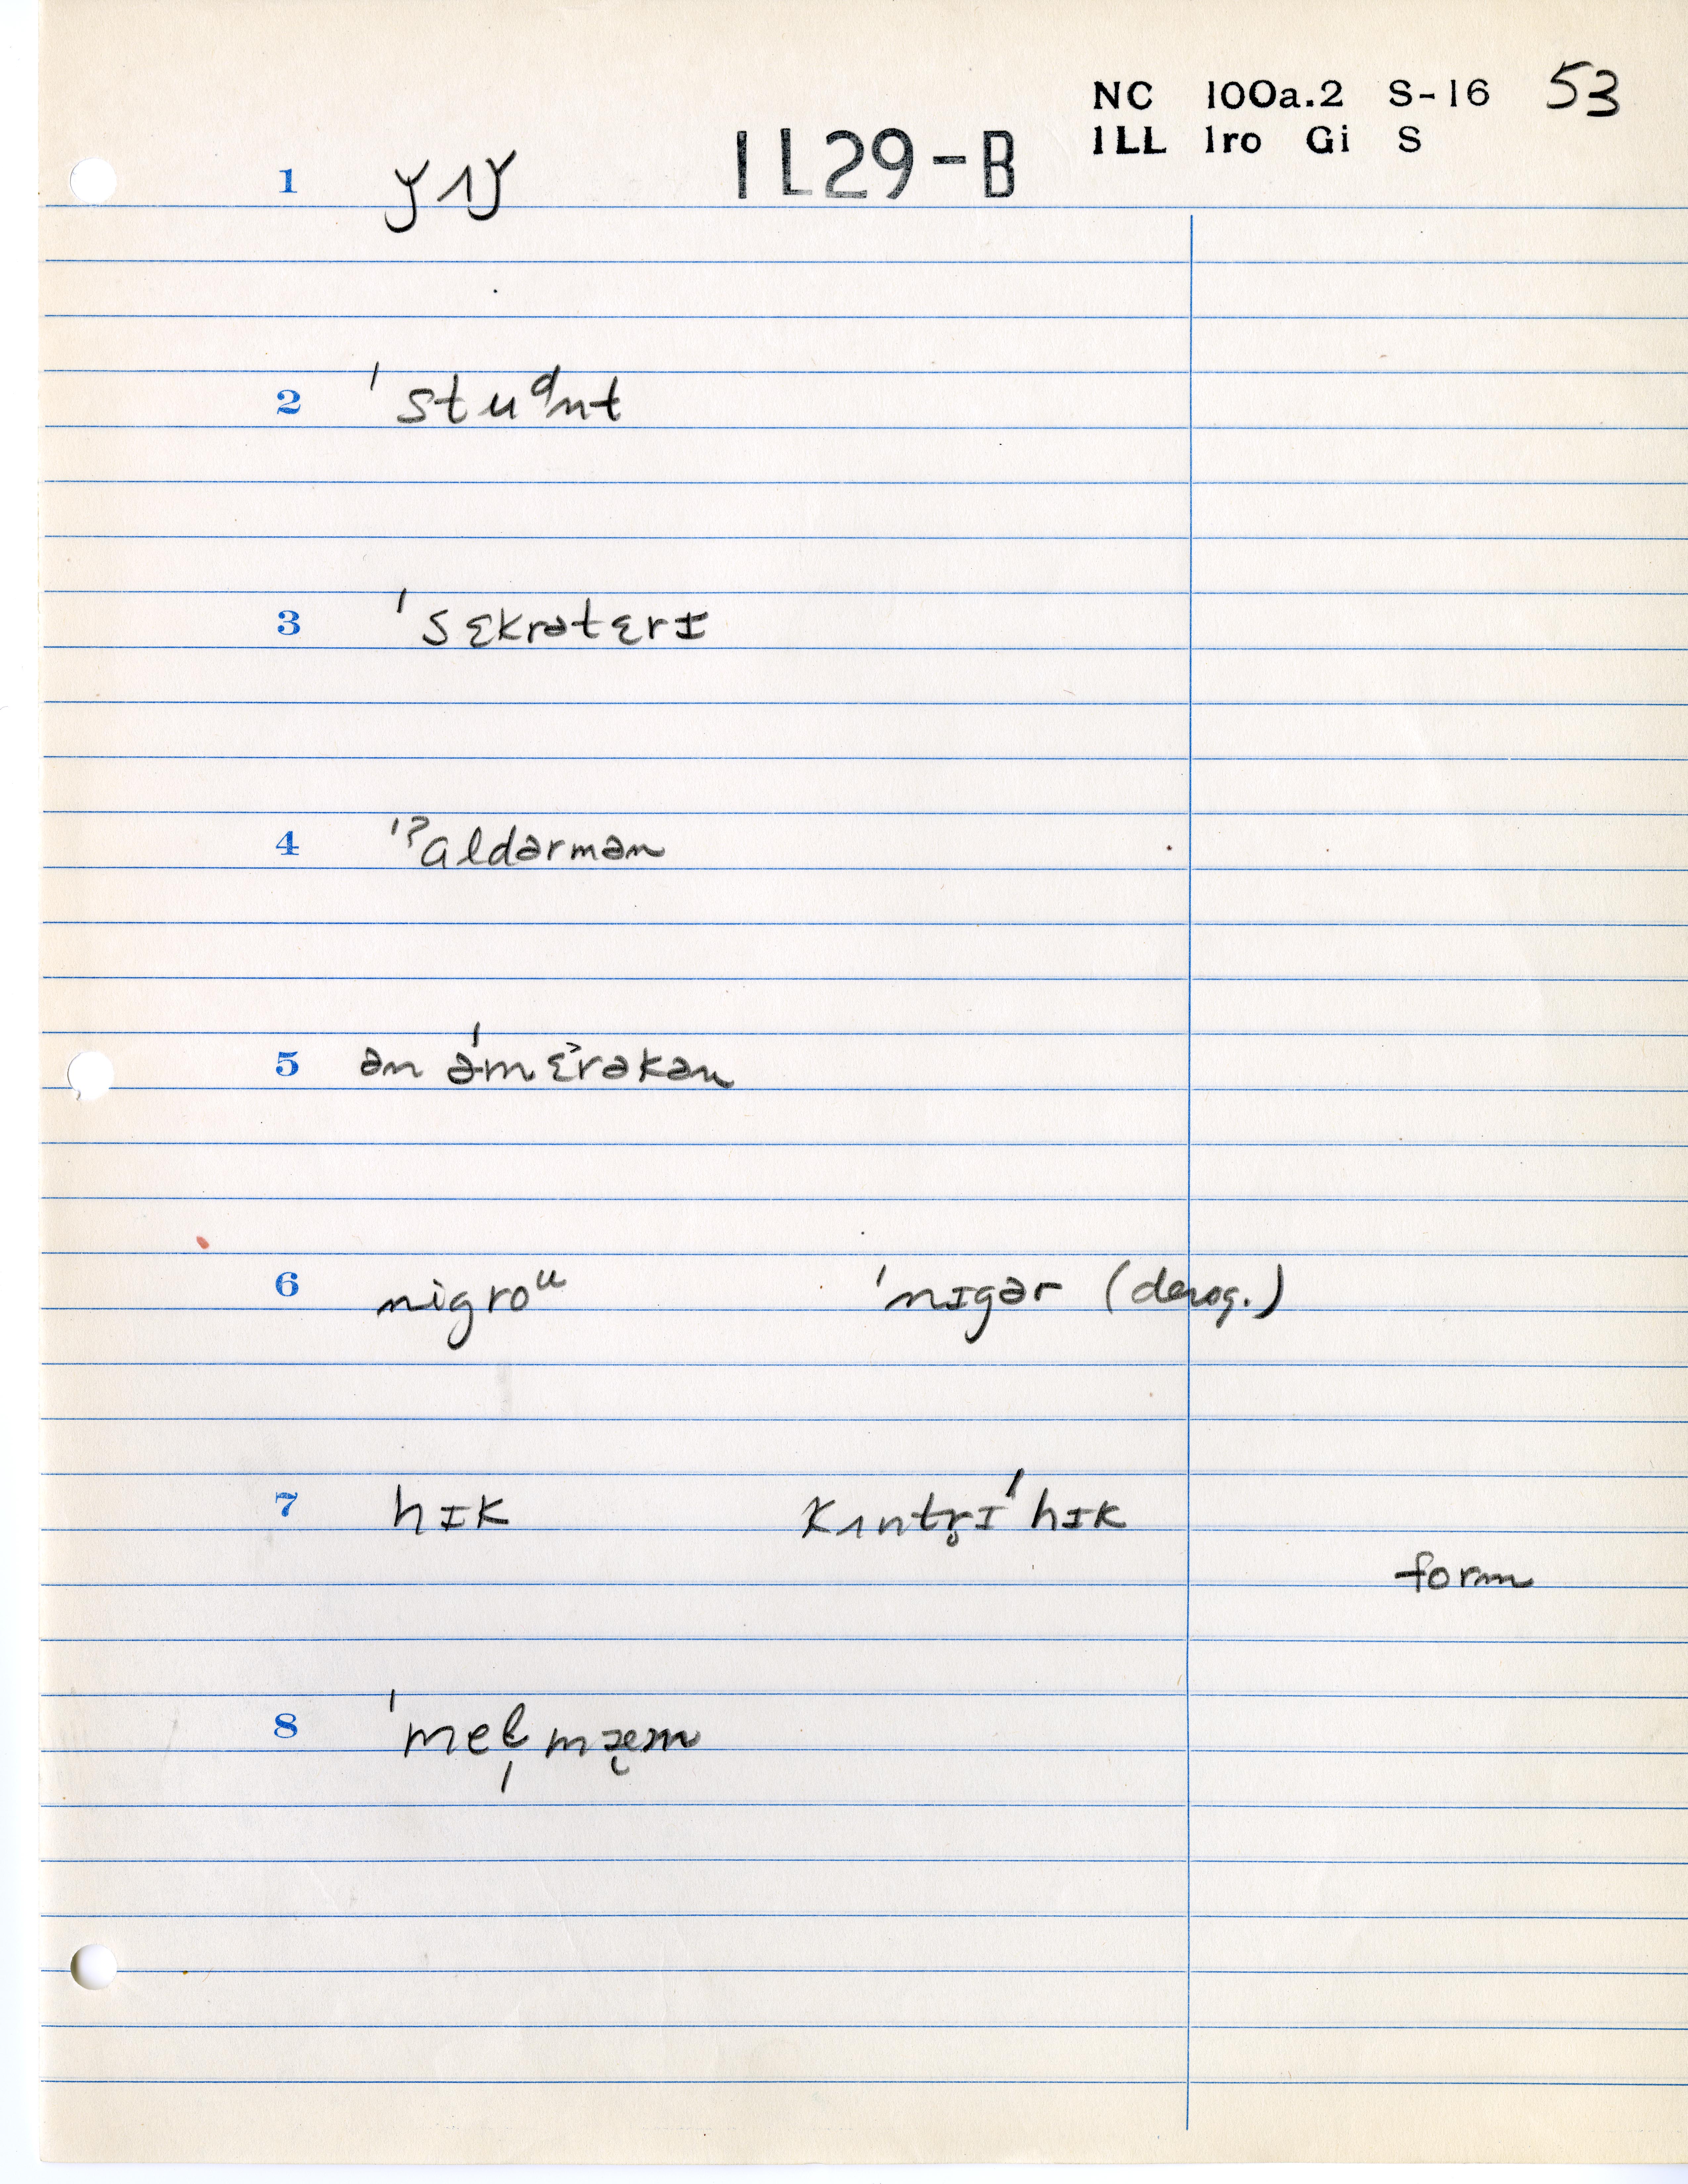 NC 100a.2 S-16 53
ILL Iro Gi S
IL29-B
1 ǰʌǰ
2 ˈstuᵊnt
3 ˈsɛkrətɛrɪ
4 ˈˀɑldərmən
5 ən əˈmɛ˃rəkən
6 nigroᵘ ˈnɪgər (derog.)
7 hɪk kʌntr̥ɪˈhɪk
form
8 ˈmeɫ̩mæ̨m